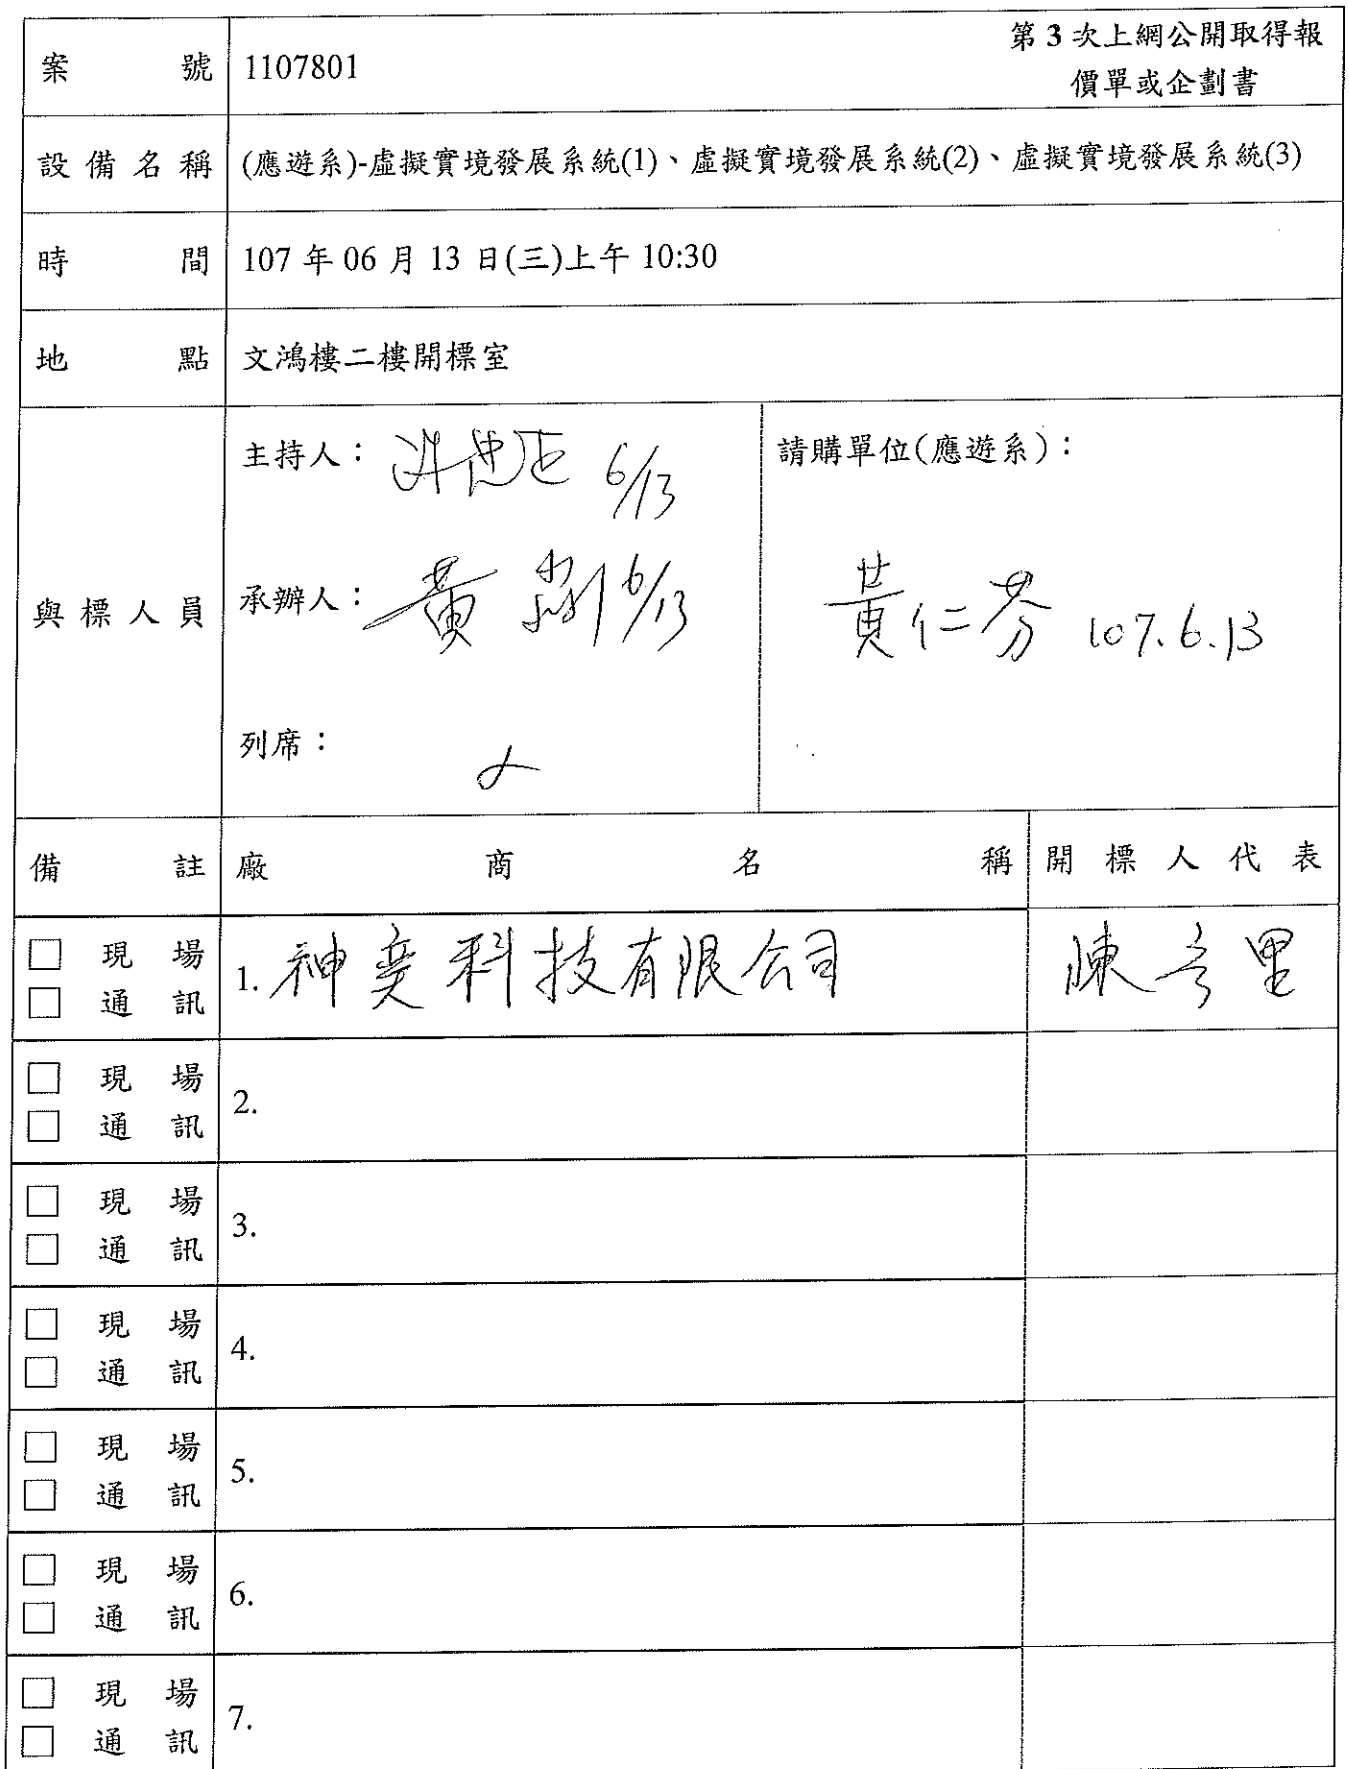 案號 1107801 第3次上網公開取得報
價單或企劃書
設備名稱 (應遊系)-虛擬實境發展系統(1)、虛擬實境發展系統(2)、虛擬實境發展系統(3)
時間 107年06月13日(三)上午10:30
地點 文鴻樓二樓開標室
與標人員
主持人： 6/13
承辦人： 黃 6/13
列席：
請購單位(應遊系)：
黃仁芬 107.6.13
備註 廠商名稱 開標人代表
□ 現場
□ 通訊
1. 神奕科技有限公司 陳 里
□ 現場
□ 通訊
2.
□ 現場
□ 通訊
3.
□ 現場
□ 通訊
4.
□ 現場
□ 通訊
5.
□ 現場
□ 通訊
6.
□ 現場
□ 通訊
7.